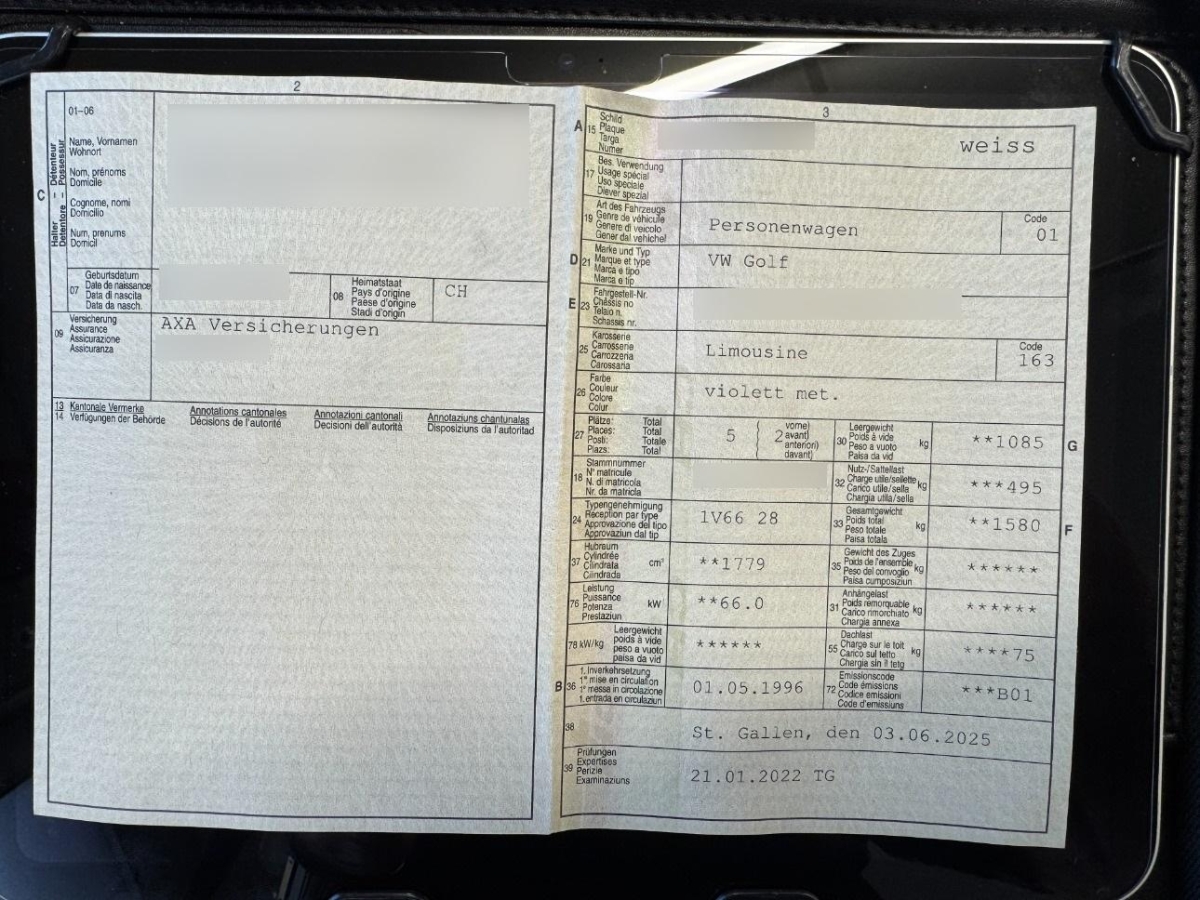 2
01-06
Halter – Détenteur
Detentore – Possessur
C
Name, Vornamen
Wohnort
Nom, prénoms
Domicile
Cognome, nomi
Domicilio
Num, prenums
Domicil
07
Geburtsdatum
Date de naissance
Data di nascita
Data da nasch.
08
Heimatstaat
Pays d'origine
Paese d'origine
Stadi d'origin
CH
09
Versicherung
Assurance
Assicurazione
Assicuranza
AXA Versicherungen
13 Kantonale Vermerke
14 Verfügungen der Behörde
Annotations cantonales
Décisions de l'autorité
Annotazioni cantonali
Decisioni dell'autorità
Annotaziuns chantunalas
Disposiziuns da l'autoritad
3
A
15
Schild
Plaque
Targa
Numer
weiss
17
Bes. Verwendung
Usage spécial
Uso speciale
Diever spezial
19
Art des Fahrzeugs
Genre de véhicule
Genere di veicolo
Gener dal vehichel
Personenwagen
Code
01
D
21
Marke und Typ
Marque et type
Marca e tipo
Marca e tip
VW Golf
E
23
Fahrgestell-Nr.
Châssis no
Telaio n.
Schassis nr.
25
Karosserie
Carrosserie
Carrozzeria
Carossaria
Limousine
Code
163
26
Farbe
Couleur
Colore
Colur
violett met.
27
Plätze: Total
Places: Total
Posti: Totale
Plazs: Total
5
2
vorne)
avant)
anteriori)
davant)
30
Leergewicht
Poids à vide
Peso a vuoto
Paisa da vid
kg
**1085
G
18
Stammnummer
N° matricule
N. di matricola
Nr. da matricla
32
Nutz-/Sattellast
Charge utile/sellette
Carico utile/sella
Chargia utila/sella
kg
***495
24
Typengenehmigung
Réception par type
Approvazione del tipo
Approvaziun dal tip
1V66 28
33
Gesamtgewicht
Poids total
Peso totale
Paisa totala
kg
**1580
F
37
Hubraum
Cylindrée
Cilindrata
Cilindrada
cm³
**1779
35
Gewicht des Zuges
Poids de l'ensemble
Peso del convoglio
Paisa cumposiziun
kg
******
76
Leistung
Puissance
Potenza
Prestaziun
kW
**66.0
31
Anhängelast
Poids remorquable
Carico rimorchiato
Chargia annexa
kg
******
78 kW/kg
Leergewicht
poids à vide
peso a vuoto
paisa da vid
******
55
Dachlast
Charge sur le toit
Carico sul tetto
Chargia sin il tetg
kg
****75
B
36
1. Inverkehrsetzung
1re mise en circulation
1a messa in circolazione
1. entrada en circulaziun
01.05.1996
72
Emissionscode
Code émissions
Codice emissioni
Code d'emissiuns
***B01
38
St. Gallen, den 03.06.2025
39
Prüfungen
Expertises
Perizie
Examinaziuns
21.01.2022 TG